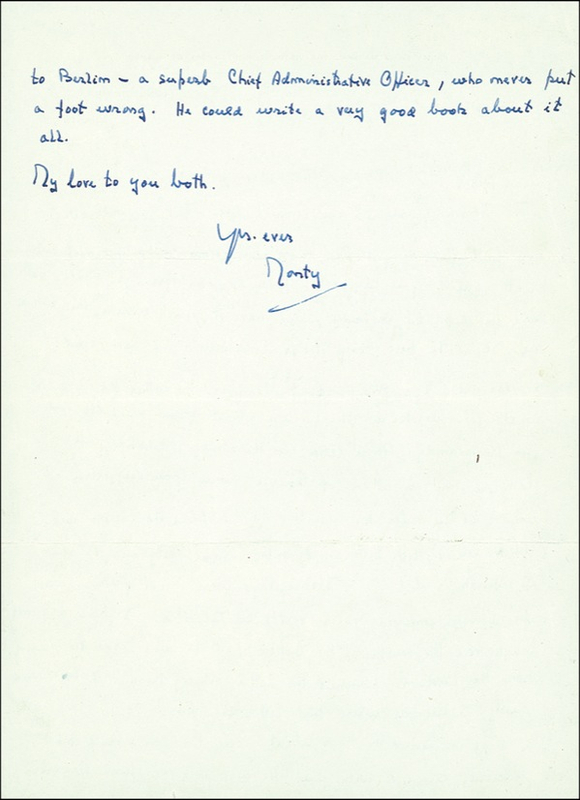 to Berlin – a superb Chief Administrative Officer, who never put
a foot wrong. He could write a very good book about it
all.
My love to you both.
Yrs. ever
Monty